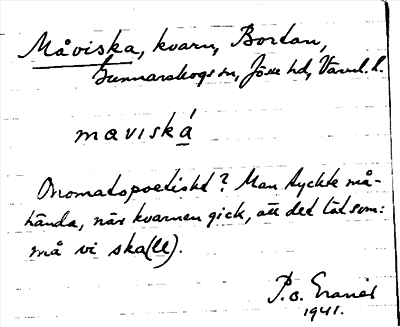 Måviska, kvarn, Bortan,
Gunnarskogs sn, Jösse hd, Värml. l.
maviská
Onomatopoetiskt? Man tyckte må-
hända, när kvarnen gick, att det lät som:
må vi ska(ll).
P. o. Graner
1941.